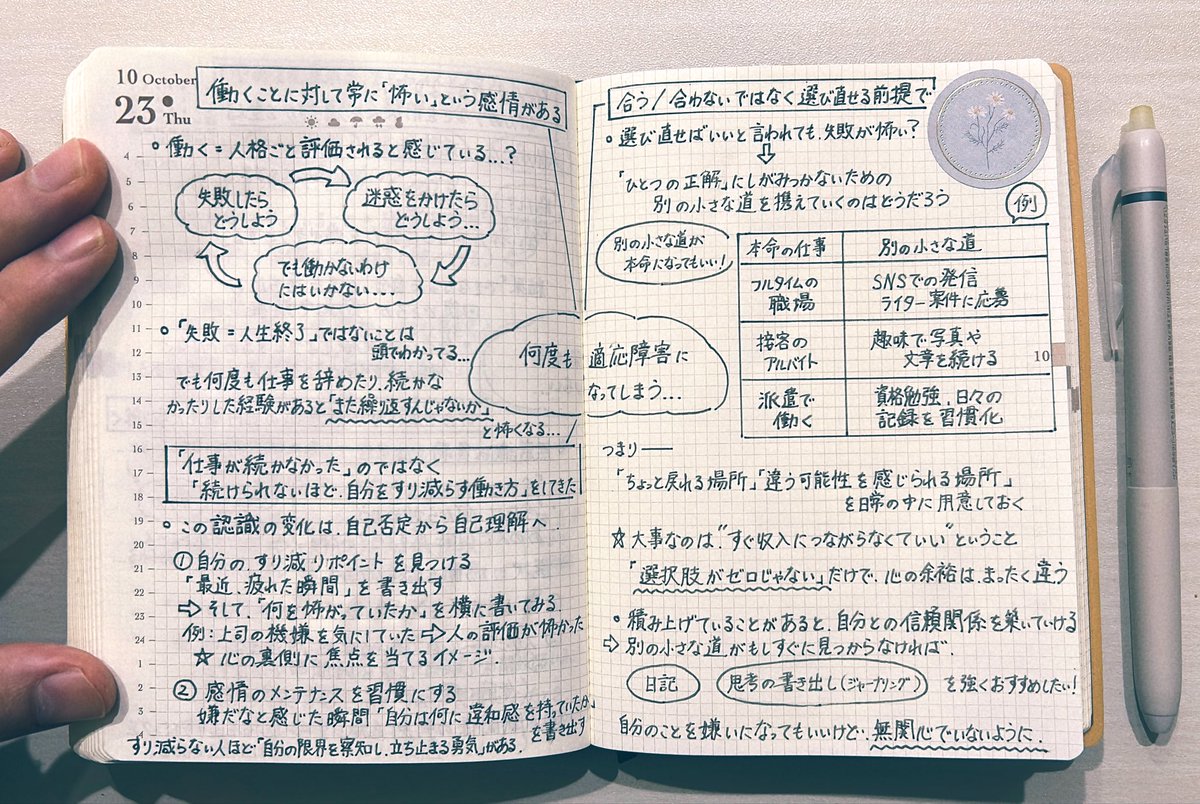 10 October
23
Thu
働くことに対して常に「怖い」という感情がある
働く=人格ごと評価されると感じている…?
失敗したら
どうしよう
迷惑をかけたら
どうしよう…
でも働かないわけ
にはいかない...
「失敗=人生終了」ではないことは
頭でわかってる…
でも何度も仕事を辞めたり、続かな
かったりした経験があると「また繰り返すんじゃないか」
と怖くなる…
「仕事が続かなかった」のではなく
「続けられないほど、自分をすり減らす働き方」をしてきた
この認識の変化は、自己否定から自己理解へ.
①自分の、すり減りポイントを見つける
「最近、疲れた瞬間」を書き出す
⇨そして、「何を怖がっていたか」を横に書いてみる.
例:上司の機嫌を気にしていた⇨人の評価が怖かった
☆心の裏側に焦点を当てるイメージ.
② 感情のメンテナンスを習慣にする
嫌だなと感じた瞬間「自分は何に違和感を持っていたか」
を書き出す
すり減らない人ほど「自分の限界を察知し、立ち止まる勇気」がある.
4
5
6
7
8
9
10
11
12
13
14
15
16
17
18
19
20
21
22
23
24
1
2
3
4
何度も 適応障害に
なってしまう…
合う/合わないではなく選び直せる前提で
選び直せばいいと言われても、失敗が怖い?
「ひとつの正解」にしがみつかないための
別の小さな道を携えていくのはどうだろう
例
別の小さな道が
本命になってもいい!
本命の仕事 別の小さな道
フルタイムの
職場
SNSでの発信
ライター案件に応募
接客の
アルバイト
趣味で写真や
文章を続ける
派遣で
働く
資格勉強、日々の
記録を習慣化
10
つまり――
「ちょっと戻れる場所」「違う可能性を感じられる場所」
を日常の中に用意しておく
☆大事なのは、"すぐ収入につながらなくていい"ということ
「選択肢がゼロじゃない」だけで、心の余裕は、まったく違う
積み上げていることがあると、自分との信頼関係を築いていける
⇨別の小さな道がもしすぐに見つからなければ、
日記
思考の書き出し(ジャーナリング)
を強くおすすめしたい!
自分のことを嫌いになってもいいけど、無関心でいないように.